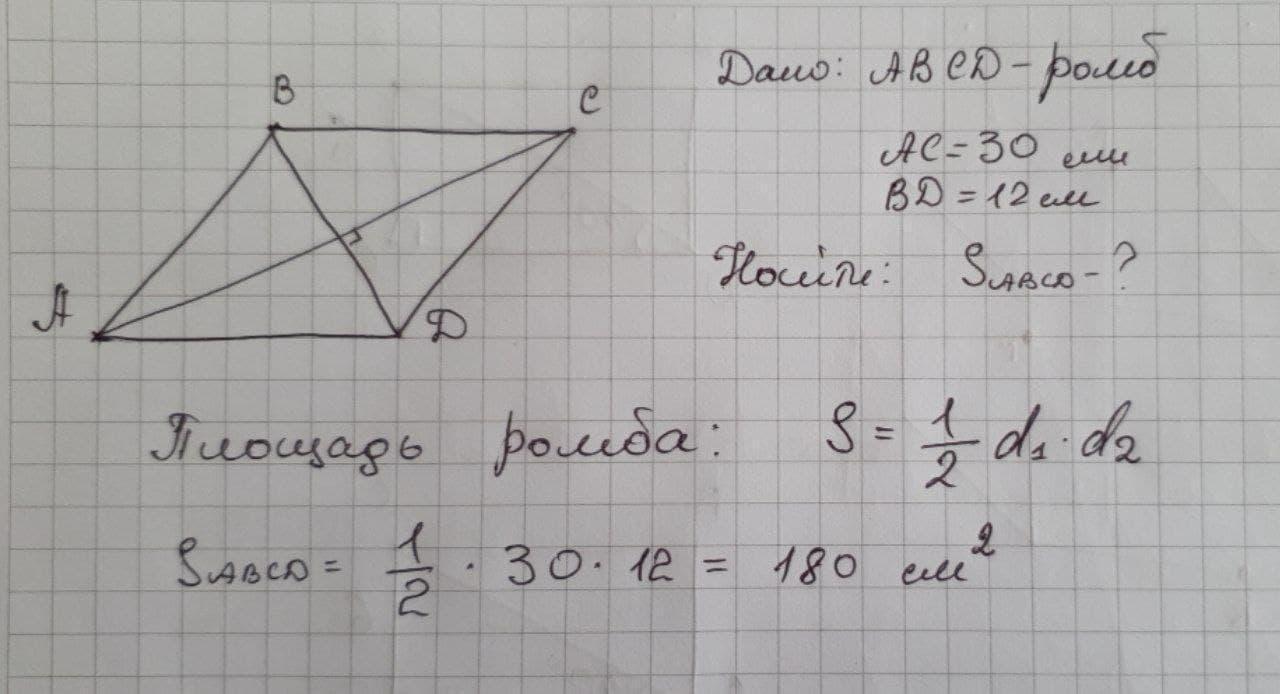 B
C
A
D
Дано: ABCD - ромб
AC = 30 см
BD = 12 см
Найти: SABCD - ?
Площадь ромба: S = 1/2 d1 · d2
SABCD = 1/2 · 30 · 12 = 180 см²